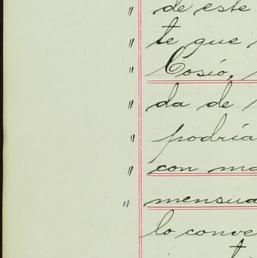 " de este
" te que
" Cosío,
" da de
" podría
" con ma
" mensua
lo conve